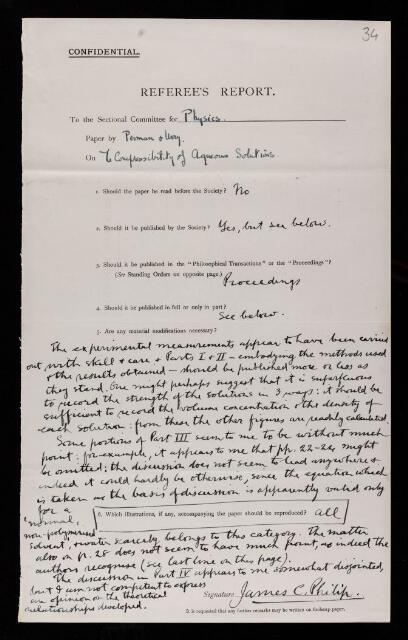 34
CONFIDENTIAL.
REFEREE'S REPORT.
To the Sectional Committee for Physics.
Paper by Perman & Urry
On The Compressibility of Aqueous Solutions.
1. Should the paper be read before the Society? No
2. Should it be published by the Society? Yes, but see below.
3. Should it be published in the "Philosophical Transactions" or the "Proceedings"?
(See Standing Orders on opposite page.) Proceedings
4. Should it be published in full or only in part?
See below.
5. Are any material modifications necessary?
The experimental measurements appear to have been carried
out with skill & care & Parts I & II - embodying the methods used
& the results obtained - should be published more or less as
they stand. One might perhaps suggest that it is superfluous
to record the strength of the solutions in 3 ways: it should be
sufficient to record the volume concentration & the density of
each solution: from these the other figures are readily calculated.
Some portions of Part III seem to me to be without much
point: for example, it appears to me that pp. 22-24 might
be omitted: the discussion does not seem to lead anywhere &
indeed it could hardly be otherwise, since the equation which
is taken as the basis of discussion is apparently valid only
for a
'normal,
6. Which illustrations, if any, accompanying the paper should be reproduced? all
non-polymerised
solvent, & water scarcely belongs to this category. The matter
also on p. 28 does not seem to have much point, as indeed the
authors recognise (see last line on this page).
The discussion in Part IV appears to me somewhat disjointed,
but I am not competent to express
an opinion on the theoretical
relationships developed.
Signature James C. Philip.
It is requested that any further remarks may be written on foolscap paper.